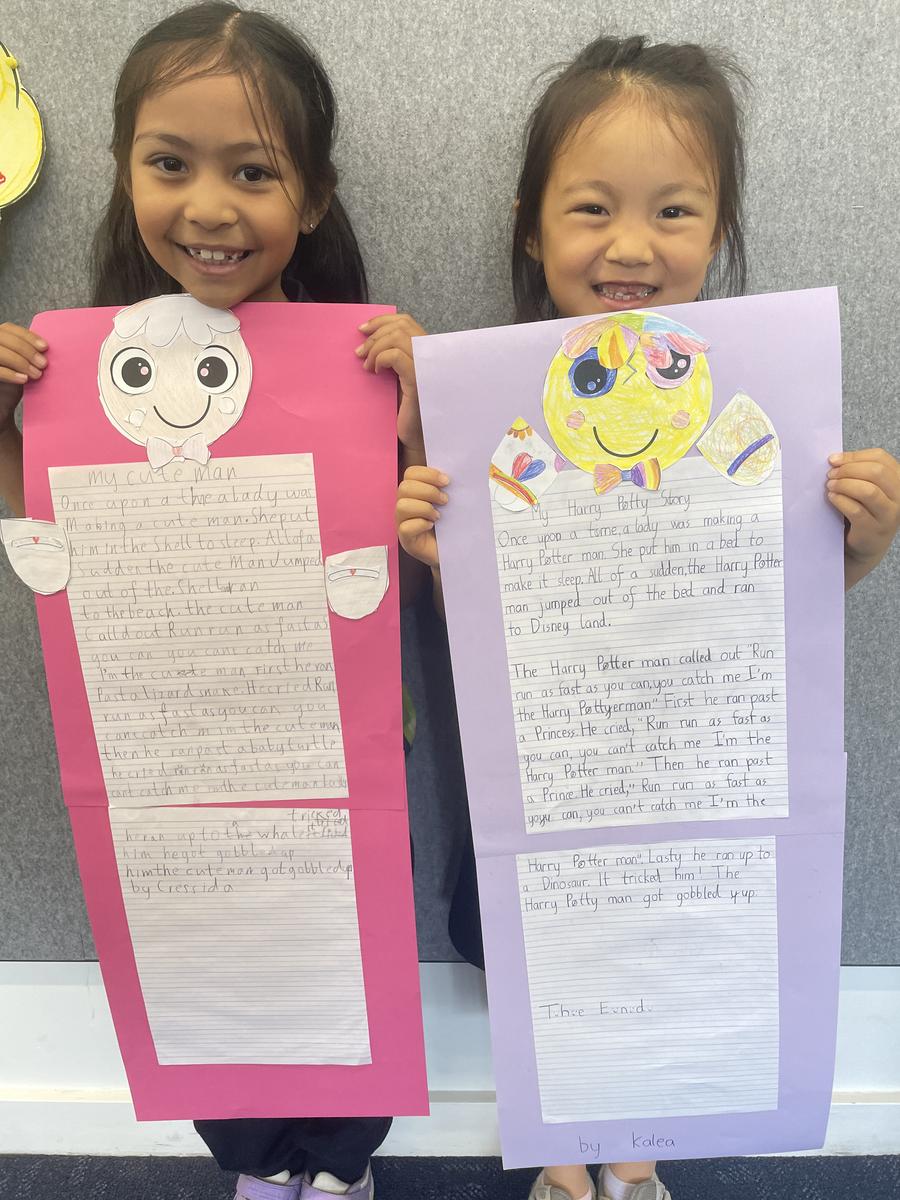 my cute man
Once upon a time a lady was
Making a cute man. She put
him in the Shell to sleep. All of a
sudden the cute Man Jumped
out of the Shell ran
to the beach. the cute man
Calld out Run run as fast as
you can you cant catch me
I'm the cute man. First he ran
Past a lizard snake. He cried Run
run as fast as you can you
cant catch m im the cute man
then he ran past a baby turtle
he cried run as fast as you can
cant catch me the cute man
tricked
he ran up to the whale
him he got gobbled up
him the cute man got gobbled up
by Cressida
My Harry Potty Story
Once upon a time, a lady was making a
Harry Potter man. She put him in a bed to
make it sleep. All of a sudden, the Harry Potter
man jumped out of the bed and ran
to Disney land.
The Harry Potter man called out "Run
run as fast as you can, you catch me I'm
the Harry Pottyerman." First he ran past
a Princess. He cried, "Run run as fast as
you can, you can't catch me I'm the
Harry Potter man." Then he ran past
a Prince. He cried," Run run as fast as
you can, you can't catch me I'm the
Harry Potter man". Lasty he ran up to
a Dinosaur. It tricked him! The
Harry Potty man got gobbled up.
by Kalea